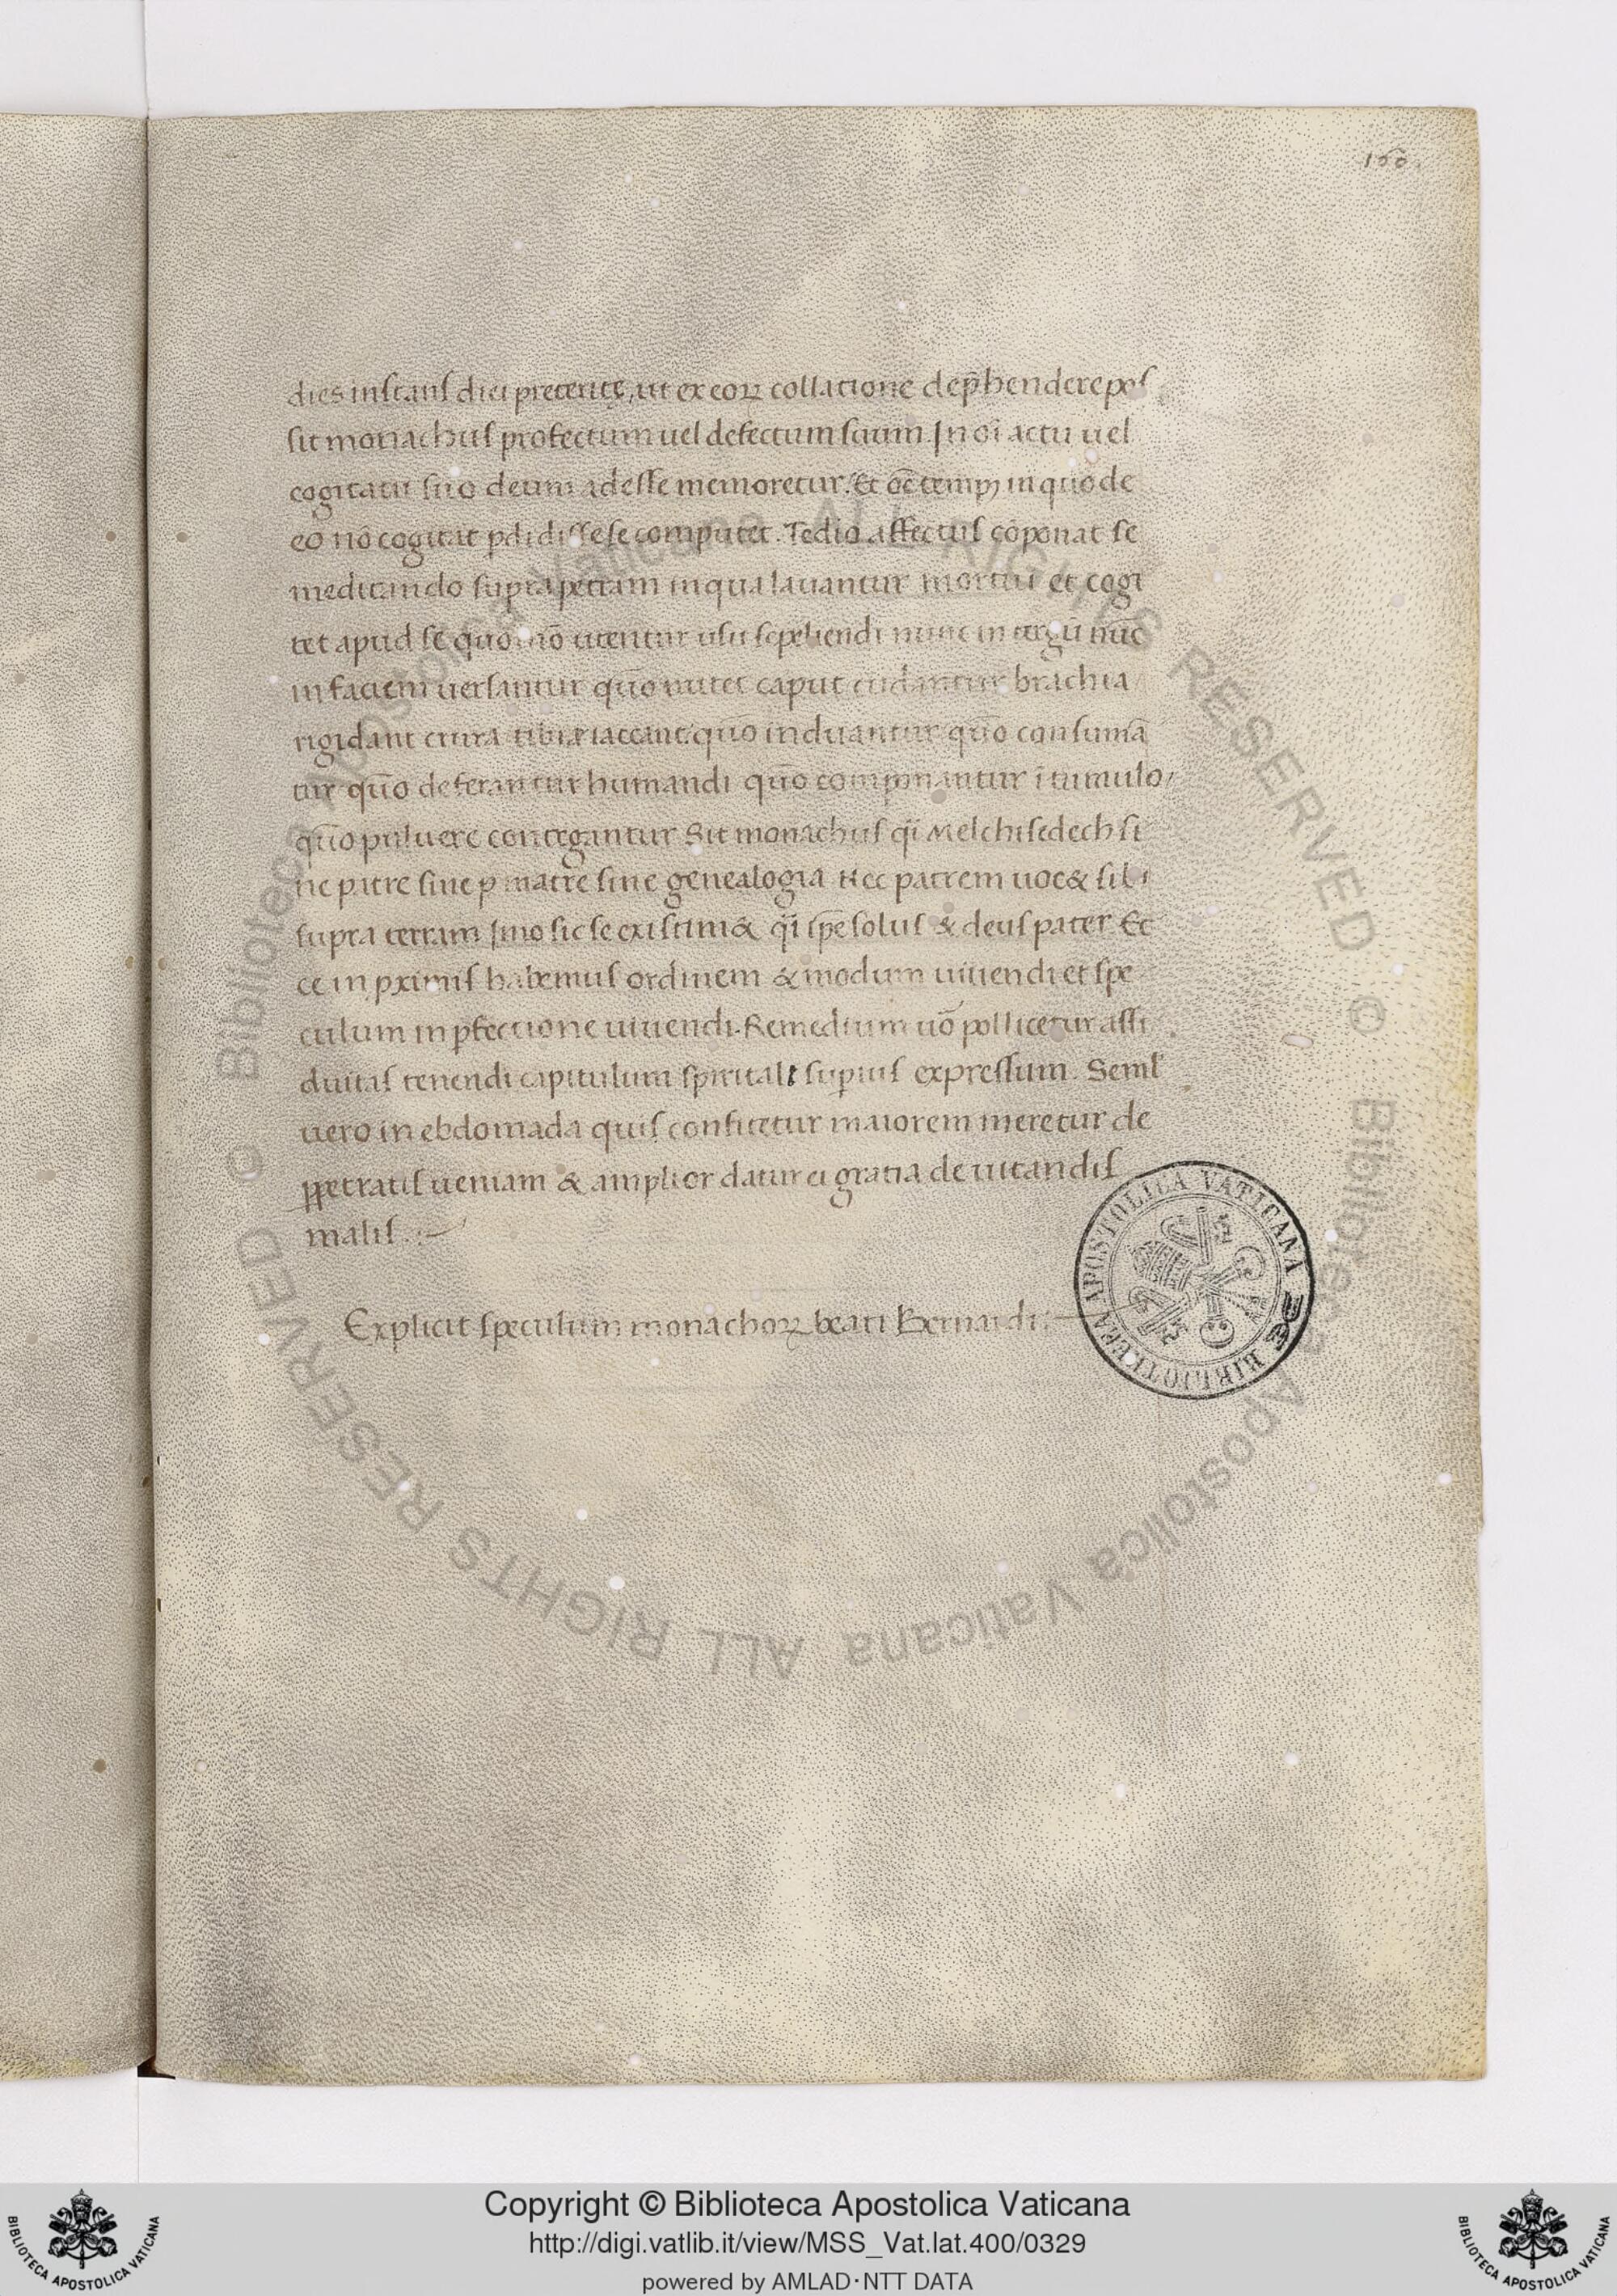 160
dies instans diei preterite, ut ex eoꝝ collatione dep̄hendere pos
sit monachus profectum uel defectum suum. In oi᷑ actu uel
cogitatu suo deum adesse memoretur. Et oē tempꝰ in quo de
eo nō cogitat ꝑdidisse se computet. Tedio affectus cōponat se
meditando supra petram in qua lauantur mortui et cogi
tet apud se quomō utentur usu sepeliendi nunc in tergū nūc
in faciem uersantur quō nutet caput cadantur brachia
rigidant crura tibiæ iaceant: quō induantur quō consumā
tur quō deferantur humandi quō componantur ī tumulo,
quō puluere contegantur Sit monachus q̄i Melchisedech si
ne patre sine matre sine genealogia Nec patrem uoc& sibi
supra terram Imo sic se existim& q̄i ip̄e solus & deus pater Ec
ce in pximis habemus ordinem & modum uiuendi et spe
culum in ꝑfectione uiuendi. Remedium uō pollicetur assi
duitas tenendi capitulum spiritale supius expressum. Seml̄
uero in ebdomada quis confitetur maiorem meretur de
ꝑpetratis ueniam & amplior datur ei gratia de uitandis
malis :~
Explicit speculum monachoꝝ beati Bernardi:~
BIBLIOTHECA APOSTOLICA VATICANA
© Biblioteca Apostolica Vaticana ALL RIGHTS RESERVED
© Biblioteca Apostolica Vaticana ALL RIGHTS RESERVED
Copyright © Biblioteca Apostolica Vaticana
http://digi.vatlib.it/view/MSS_Vat.lat.400/0329
powered by AMLAD·NTT DATA
BIBLIOTECA APOSTOLICA VATICANA
BIBLIOTECA APOSTOLICA VATICANA